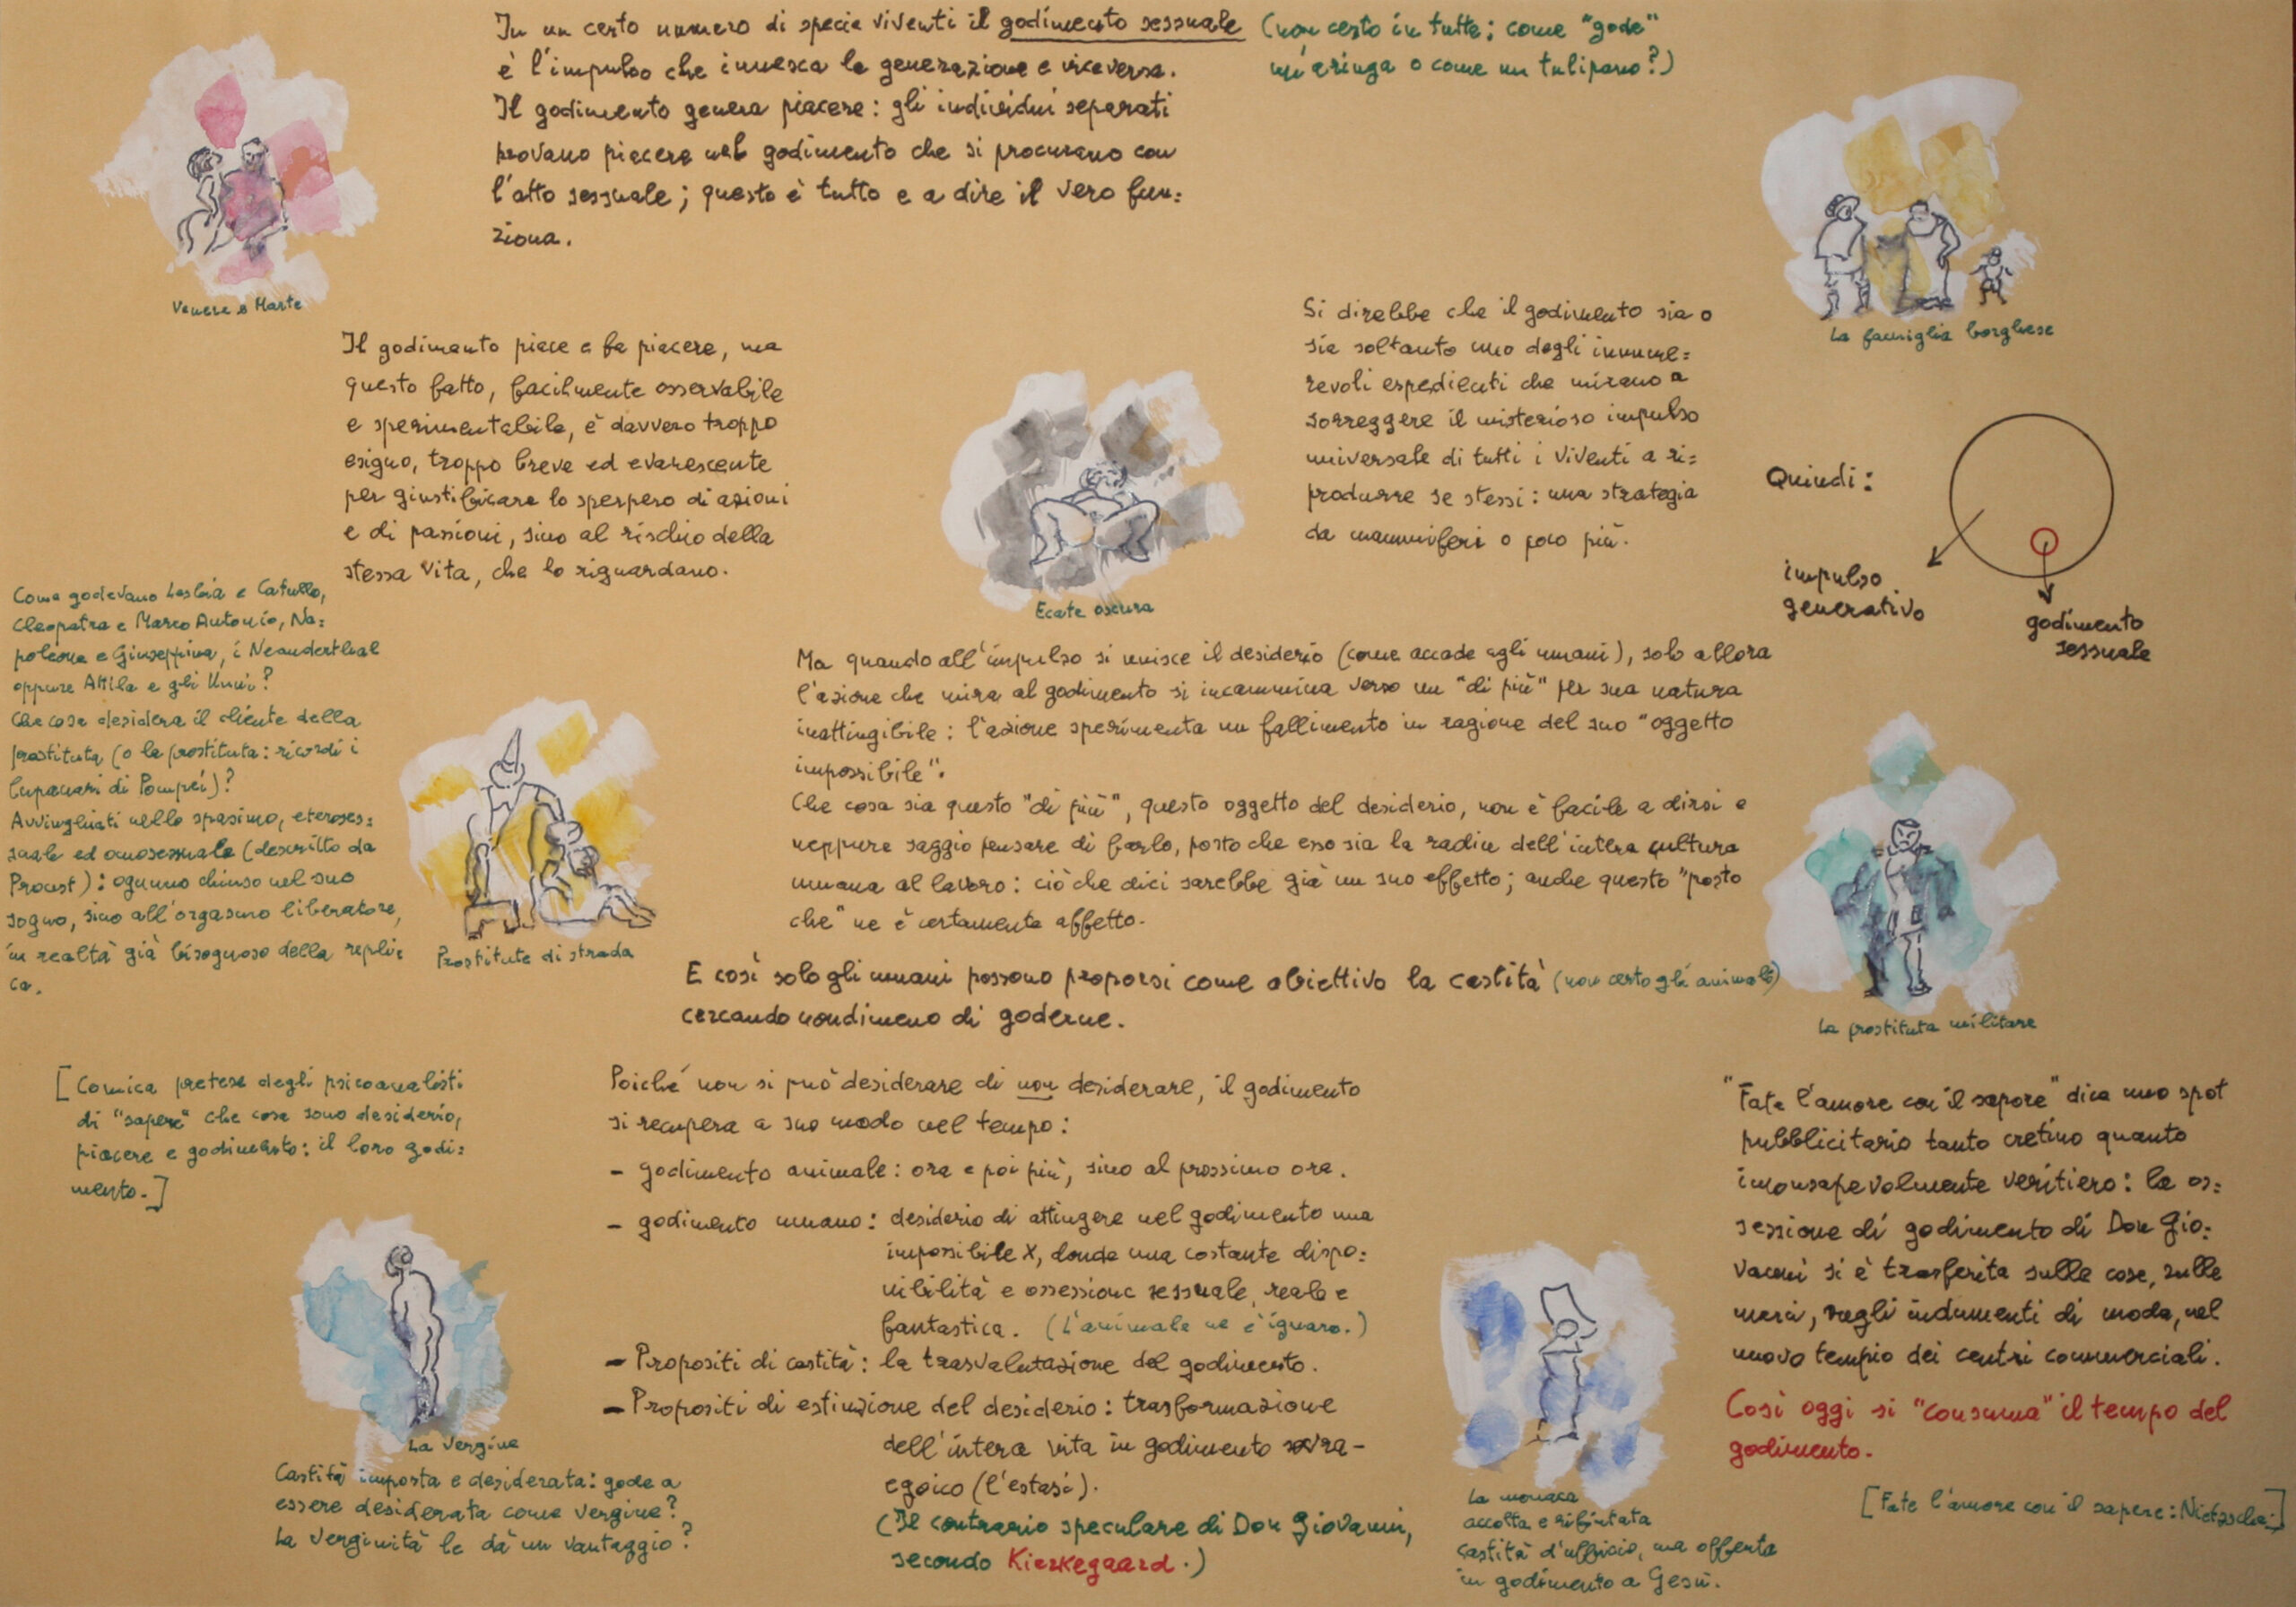 In un certo numero di specie viventi il godimento sessuale (non certo in tutte; come "gode"
è l'impulso che innesca la generazione e viceversa. un'aringa o come un tulipano?)
Il godimento genera piacere: gli individui separati
provano piacere nel godimento che si procurano con
l'atto sessuale; questo è tutto e a dire il vero fun=
ziona.
Venere e Marte
Il godimento piace e fa piacere, ma
questo fatto, facilmente osservabile
e sperimentabile, è davvero troppo
esiguo, troppo breve ed evanescente
per giustificare lo sperpero di azioni
e di passioni, sino al rischio della
stessa vita, che lo riguardano.
Ecate oscura
Si direbbe che il godimento sia o
sia soltanto uno degli innume=
revoli espedienti che mirano a
sorreggere il misterioso impulso
universale di tutti i viventi a ri=
produrre se stessi: una strategia
da mammiferi o poco più.
La famiglia borghese
Quindi:
impulso
generativo
godimento
sessuale
Come godevano Lesbia e Catullo,
Cleopatra e Marco Antonio, Na=
poleone e Giuseppina, i Neanderthal
oppure Attila e gli Unni?
Che cosa desidera il cliente della
prostituta (o la prostituta: ricordi i
lupanari di Pompei)?
Avvinghiati nello spasimo, eteroses=
suale ed omosessuale (descritto da
Proust): ognuno chiuso nel suo
sogno, sino all'orgasmo liberatore,
in realtà già bisognoso della repli=
ca.
Prostitute di strada
Ma quando all'impulso si unisce il desiderio (come accade agli umani), solo allora
l'azione che mira al godimento si incammina verso un "di più" per sua natura
inattingibile: l'azione sperimenta un fallimento in ragione del suo "oggetto
impossibile".
Che cosa sia questo "di più", questo oggetto del desiderio, non è facile a dirsi e
neppure saggio pensare di farlo, posto che esso sia la radice dell'intera cultura
umana al lavoro: ciò che dici sarebbe già un suo effetto; anche questo "posto
che" ne è certamente affetto.
E così solo gli umani possono proporsi come obiettivo la castità (non certo gli animali)
cercando nondimeno di goderne.
La prostituta militare
[Comica pretesa degli psicoanalisti
di "sapere" che cosa sono desiderio,
piacere e godimento: il loro godi=
mento.]
La Vergine
Castità imposta e desiderata: gode a
essere desiderata come vergine?
La verginità le dà un vantaggio?
Poiché non si può desiderare di non desiderare, il godimento
si recupera a suo modo nel tempo:
- godimento animale: ora e poi più, sino al prossimo ora.
- godimento umano: desiderio di attingere nel godimento una
impossibile X, donde una costante dispo=
nibilità e ossessione sessuale, reale e
fantastica. (L'animale ne è ignaro.)
- Propositi di castità: la trasvalutazione del godimento.
- Propositi di estinzione del desiderio: trasformazione
dell'intera vita in godimento sovra-
egoico (l'estasi).
(Il contrario speculare di Don Giovanni,
secondo Kierkegaard.)
La monaca
accolta e rifiutata
castità d'ufficio, ma offerta
in godimento a Gesù.
"Fate l'amore con il sapore" dice uno spot
pubblicitario tanto cretino quanto
inconsapevolmente veritiero: la os=
sessione di godimento di Don Gio=
vanni si è trasferita sulle cose, sulle
merci, sugli indumenti di moda, nel
nuovo tempio dei centri commerciali.
Così oggi si "consuma" il tempo del
godimento.
[Fate l'amore con il sapere: Nietzsche.]